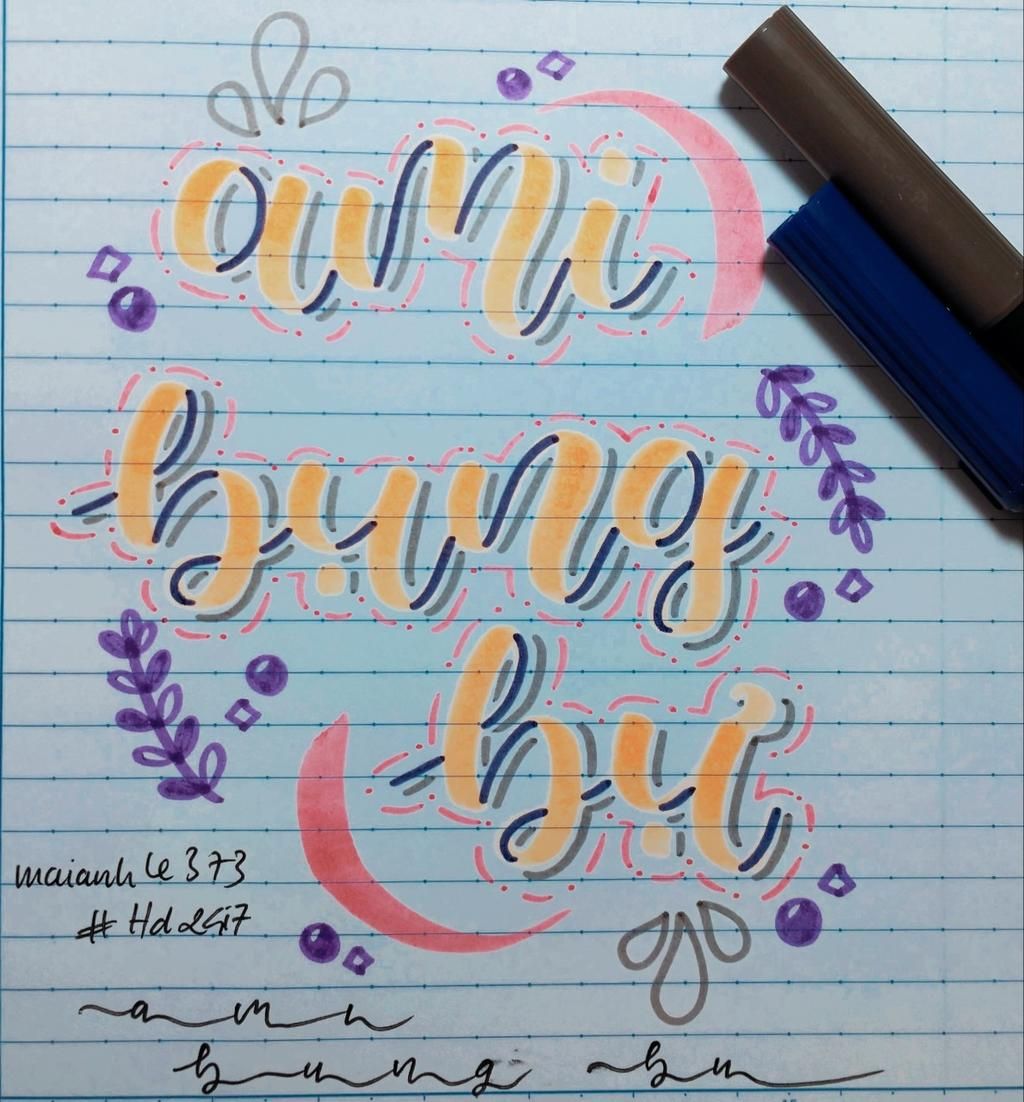 ami
bụng
bự
maianhle373
#Hd24i7
ami
bung bu